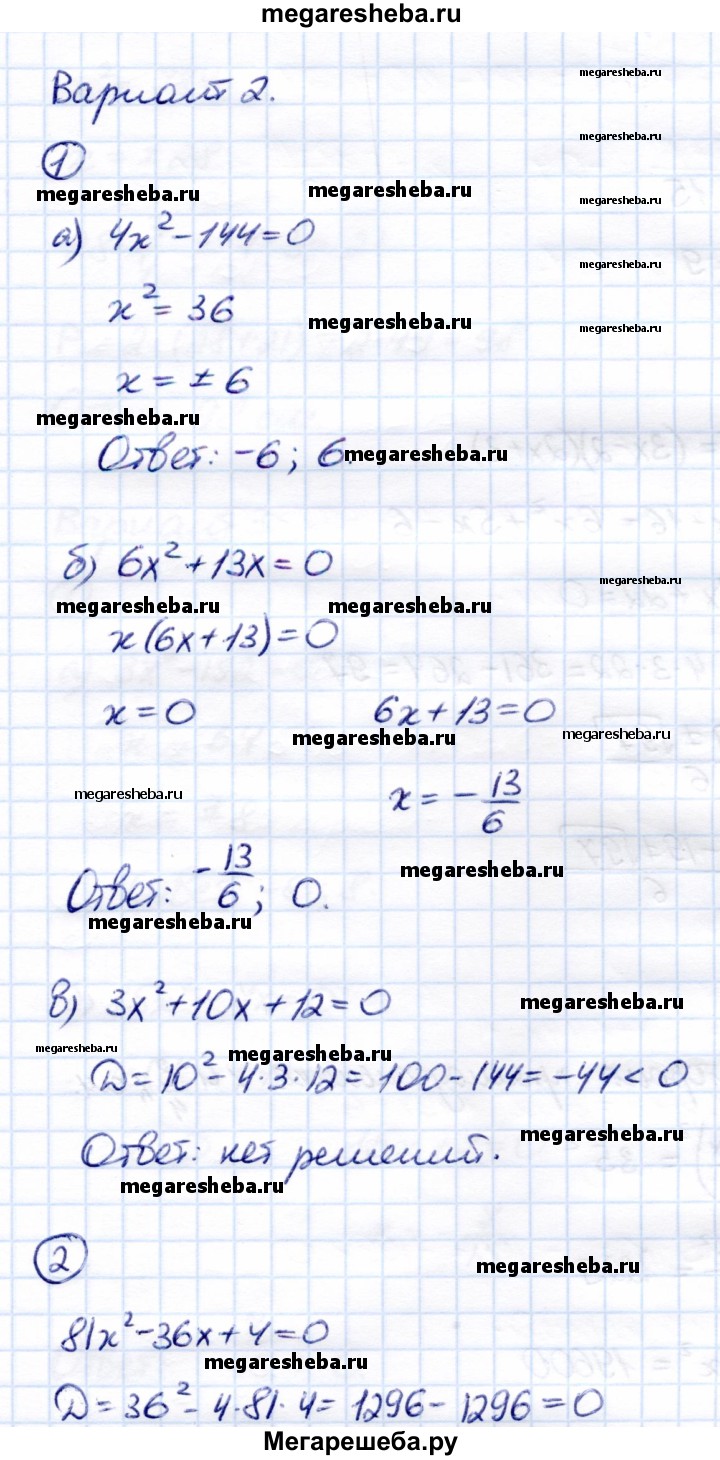 megaresheba.ru
Вариант 2.
megaresheba.ru
megaresheba.ru
1
megaresheba.ru
megaresheba.ru
megaresheba.ru
а) 4x² - 144 = 0
megaresheba.ru
x² = 36
megaresheba.ru
megaresheba.ru
x = ± 6
megaresheba.ru
Ответ: -6; 6.
megaresheba.ru
б) 6x² + 13x = 0
megaresheba.ru
megaresheba.ru
megaresheba.ru
x(6x + 13) = 0
x = 0 6x + 13 = 0
megaresheba.ru
megaresheba.ru
megaresheba.ru
x = -13/6
megaresheba.ru
Ответ: -13/6; 0.
megaresheba.ru
в) 3x² + 10x + 12 = 0
megaresheba.ru
megaresheba.ru
megaresheba.ru
D = 10² - 4·3·12 = 100 - 144 = -44 < 0
megaresheba.ru
Ответ: нет решений.
megaresheba.ru
2
megaresheba.ru
81x² - 36x + 4 = 0
megaresheba.ru
D = 36² - 4·81·4 = 1296 - 1296 = 0
Мегарешеба.ру